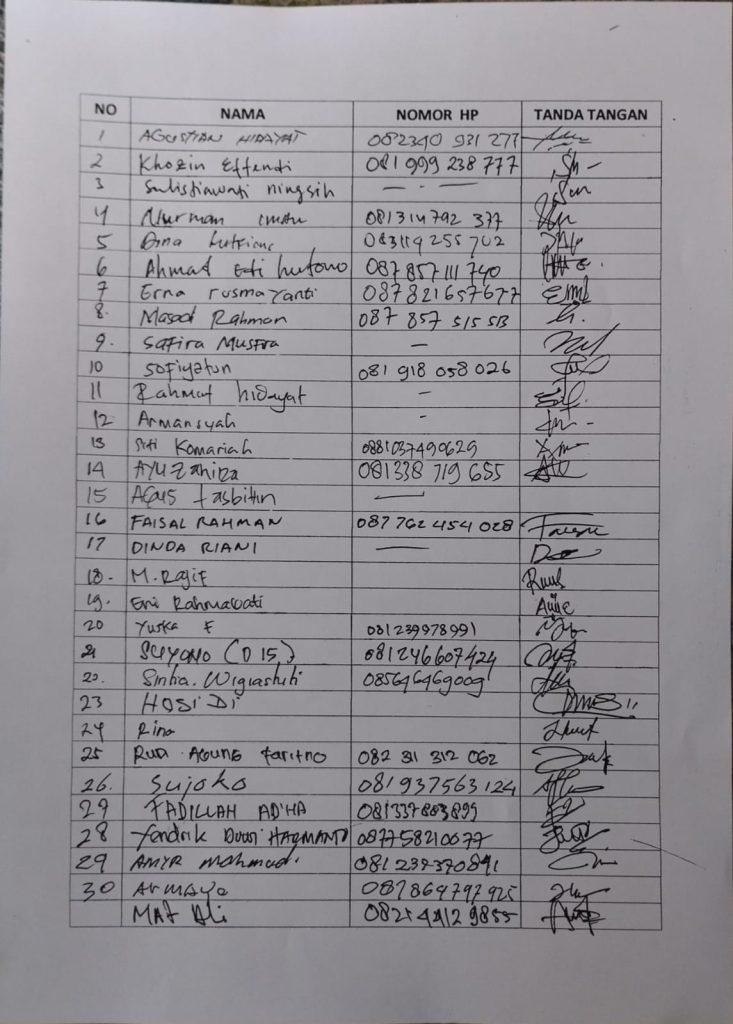 NO NAMA NOMOR HP TANDA TANGAN
1 AGUSTIAN HIDAYAT 082340 931 277
2 Khozin Effendi 081 999 238 777
3 Sulistiawati ningsih — . —
4 Nurman 081314 792 377
5 Dina 083119 255 702
6 Ahmad Edi hutono 087 857 111 740
7 Erna rusmayanti 087821657677
8. Masod Rahman 087 857 515 513
9. Safira Mustra —
10 Sofiyatun 081 918 058 026
11 Rahmat hidayat -
12 Armansyah -
13 Siti Komariah 0881037490629
14 Ayu Zahira 081338 719 655
15 Agus tasbihin —
16 FAISAL RAHMAN 087 762 454 028
17 DINDA RIANI —
18. M. Ragif
19. Eni Rahmawati
20 Yuska F 081239978991
21 SUYONO (D 15) 081246607424
20. Sintia. Wigiastuti 085646469009
23 HOSIDI
24 Rina
25 RUDI AGUNG Faritno 082 31 312 062
26. Sujoko 081937563124
29 FADILLAH AD'HA 081337883899
28 Yandrik Dwi HARMANTO 087758210077
29 AMIR Mahmudi 081237370891
30 Armaya 087864797925
MAT Ali